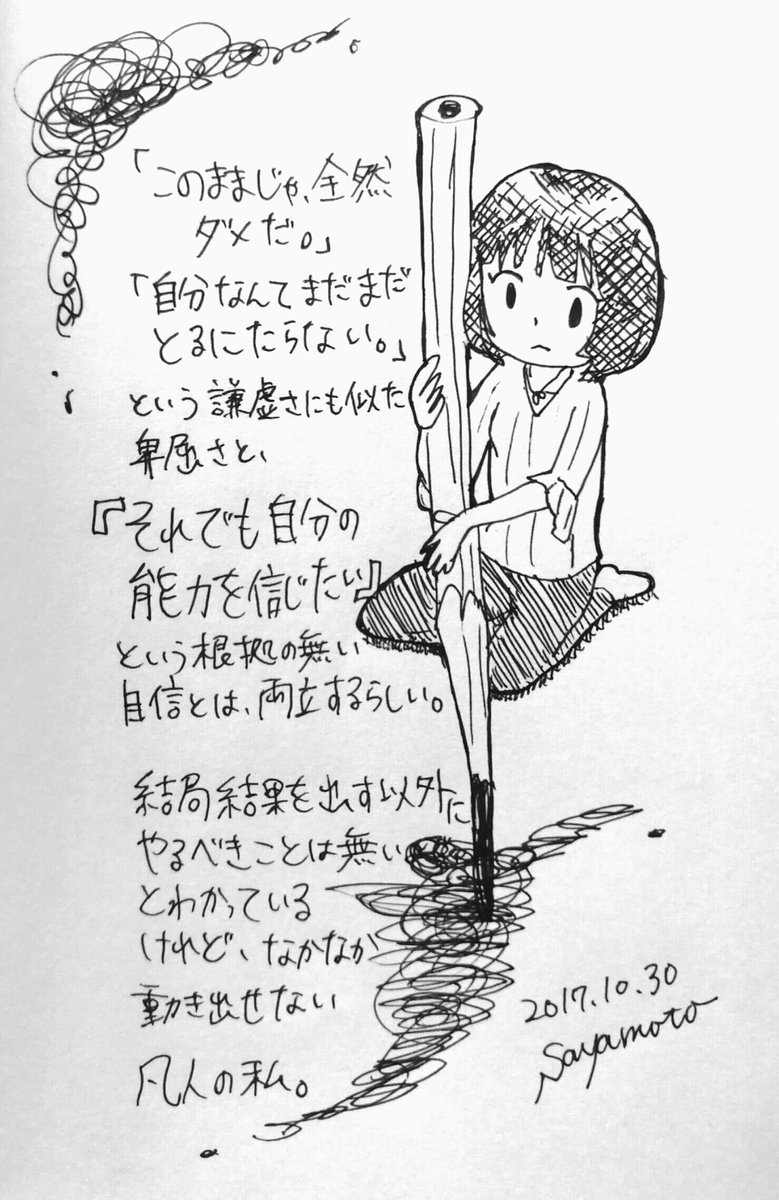 「このままじゃ、全然
ダメだ。」
「自分なんてまだまだ
とるにたらない。」
という謙虚さにも似た
卑屈さと、
『それでも自分の
能力を信じたい』
という根拠の無い
自信とは、両立するらしい。
結局結果を出す以外に
やるべきことは無い
とわかっている
けれど、なかなか
動き出せない
凡人の私。
2017.10.30
Sayamoto